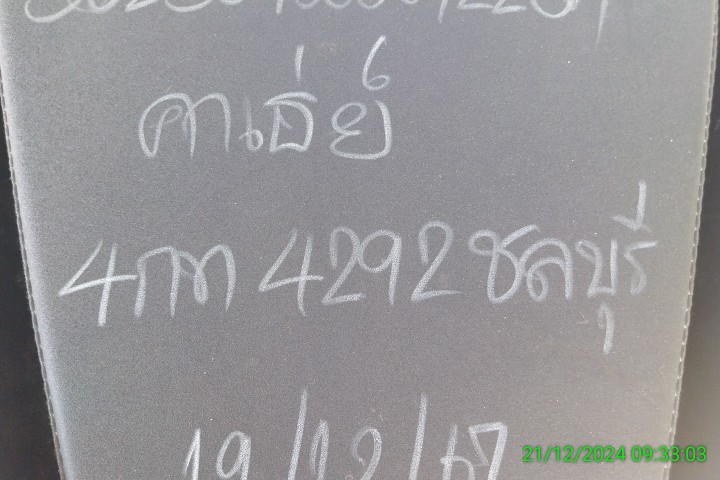 คาเธ่ย์
4กท 4292 ชลบุรี
19/12/67
21/12/2024 09:33:03